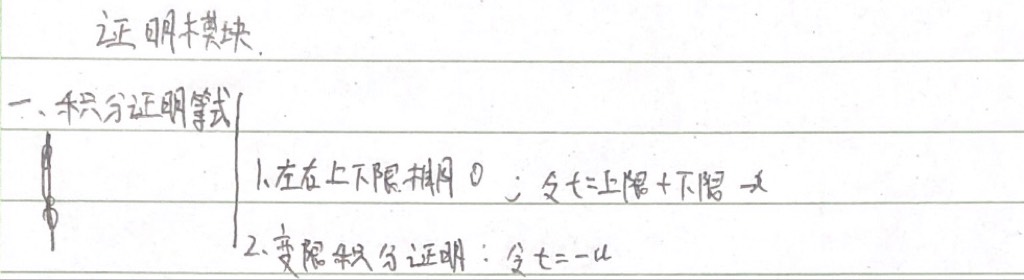 证明模块.
一、积分证明等式
1、左右上下限相同 ; 令t=上限+下限-x
2、变限积分证明:令t=-u